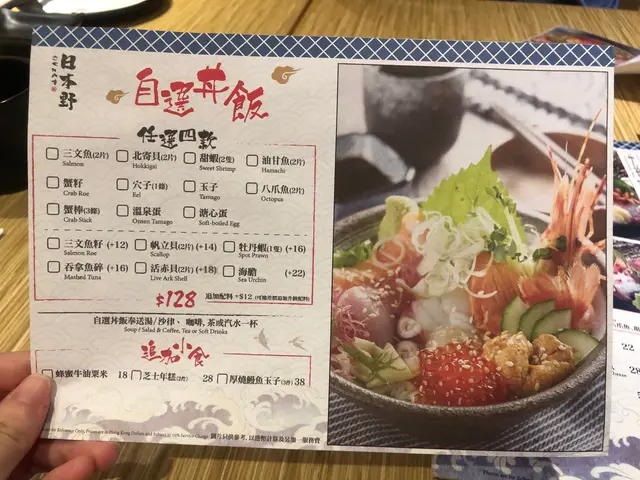 日本野
自選丼飯
任選四款
三文魚(2片) 北寄貝(2片) 甜蝦(2隻) 油甘魚(2片)
Salmon Hokkigai Sweet Shrimp Hamachi
蟹籽 穴子(1條) 玉子 八爪魚(2片)
Crab Roe Eel Tamago Octopus
蟹棒(3條) 溫泉蛋 溏心蛋
Crab Stick Onsen Tamago Soft-boiled Egg
三文魚籽 (+12) 帆立貝(2片) (+14) 牡丹蝦(1隻) (+16)
Salmon Roe Scallop Spot Prawn
吞拿魚碎 (+16) 活赤貝(2片) (+18) 海膽 (+22)
Mashed Tuna Live Ark Shell Sea Urchin
$128 追加配料 +$12
自選丼飯奉送湯/沙律、咖啡, 茶或汽水一杯
Soup / Salad & Coffee, Tea or Soft Drinks
追加小食
蜂蜜牛油粟米 18 芝士年糕(2件) 28 厚燒鰻魚玉子(3件) 38
22
28